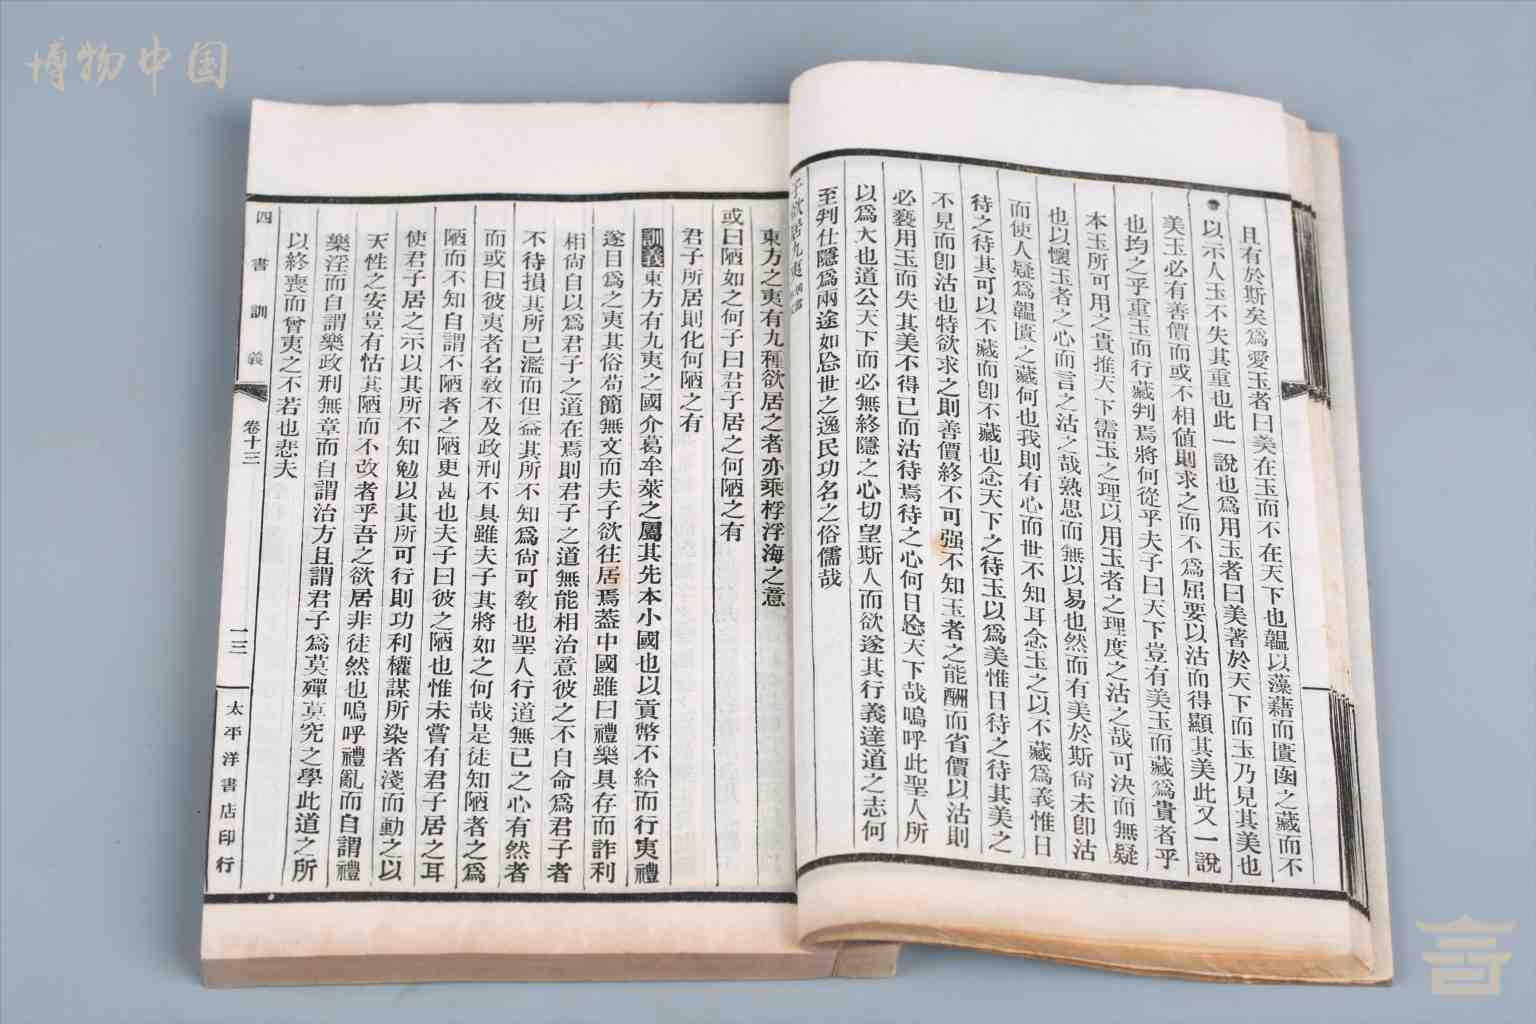 博物中国
且有於斯矣爲愛玉者曰美在玉而不在天下也韞以藻藉而匱函之藏而不
以示人玉不失其重也此一說也爲用玉者曰美著於天下而玉乃見其美也
美玉必有善價而或不相値則求之而不爲屈要以沽而得顯其美此又一說
也均之乎重玉而行藏判焉將何從乎夫子曰天下豈有美玉而藏爲貴者乎
本玉所可用之貴推天下需玉之理以用玉者之理度之沽之哉可決而無疑
也以懷玉者之心而言之沽之哉熟思而無以易也然而有美於斯尙未卽沽
而使人疑爲韞匱之藏何也我則有心而世不知耳念玉之以不藏爲義惟日
待之待其可以不藏而卽不藏也念天下之待玉以爲美惟日待之待其美之
不見而卽沽也特欲求之則善價終不可强不知玉者之能酬而省價以沽則
必褻用玉而失其美不得已而沽待焉待之心何日忘天下哉嗚呼此聖人所
以爲大也道公天下而必無終隱之心切望斯人而欲遂其行義達道之志何
至判仕隱爲兩途如忘世之逸民功名之俗儒哉
子欲居九夷
東方之夷有九種欲居之者亦乘桴浮海之意
或曰陋如之何子曰君子居之何陋之有
君子所居則化何陋之有
訓義東方有九夷之國介葛牟萊之屬其先本小國也以貢幣不給而行夷禮
遂目爲之夷其俗苟簡無文而夫子欲往居焉蓋中國雖曰禮樂具存而詐利
相尙自以爲君子之道在焉則君子之道無能相治意彼之不自命爲君子者
不待損其所已濫而但益其所不知爲尙可敎也聖人行道無已之心有然者
而或曰彼夷者名敎不及政刑不具雖夫子其將如之何哉是徒知陋者之爲
陋而不知自謂不陋者之陋更甚也夫子曰彼之陋也惟未嘗有君子居之耳
使君子居之示以其所不知勉以其所可行則功利權謀所染者淺而動之以
天性之安豈有怙其陋而不改者乎吾之欲居非徒然也嗚呼禮亂而自謂禮
樂淫而自謂樂政刑無章而自謂治方且謂君子爲莫殫莫究之學此道之所
以終喪而曾夷之不若也悲夫
四書訓義
卷十三
一三
太平洋書店印行